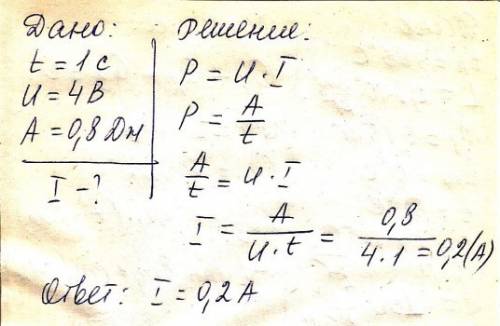 Дано:
t = 1 с
U = 4 В
A = 0,8 Дж
I - ?
Решение:
P = U · I
P = A/t
A/t = U · I
I = A/(U · t) = 0,8/(4 · 1) = 0,2 (А)
Ответ: I = 0,2 А